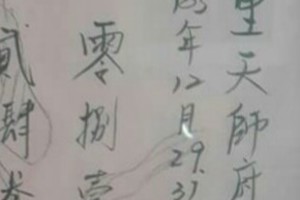 天師府
年12月29.31
零捌壹
貳肆叁